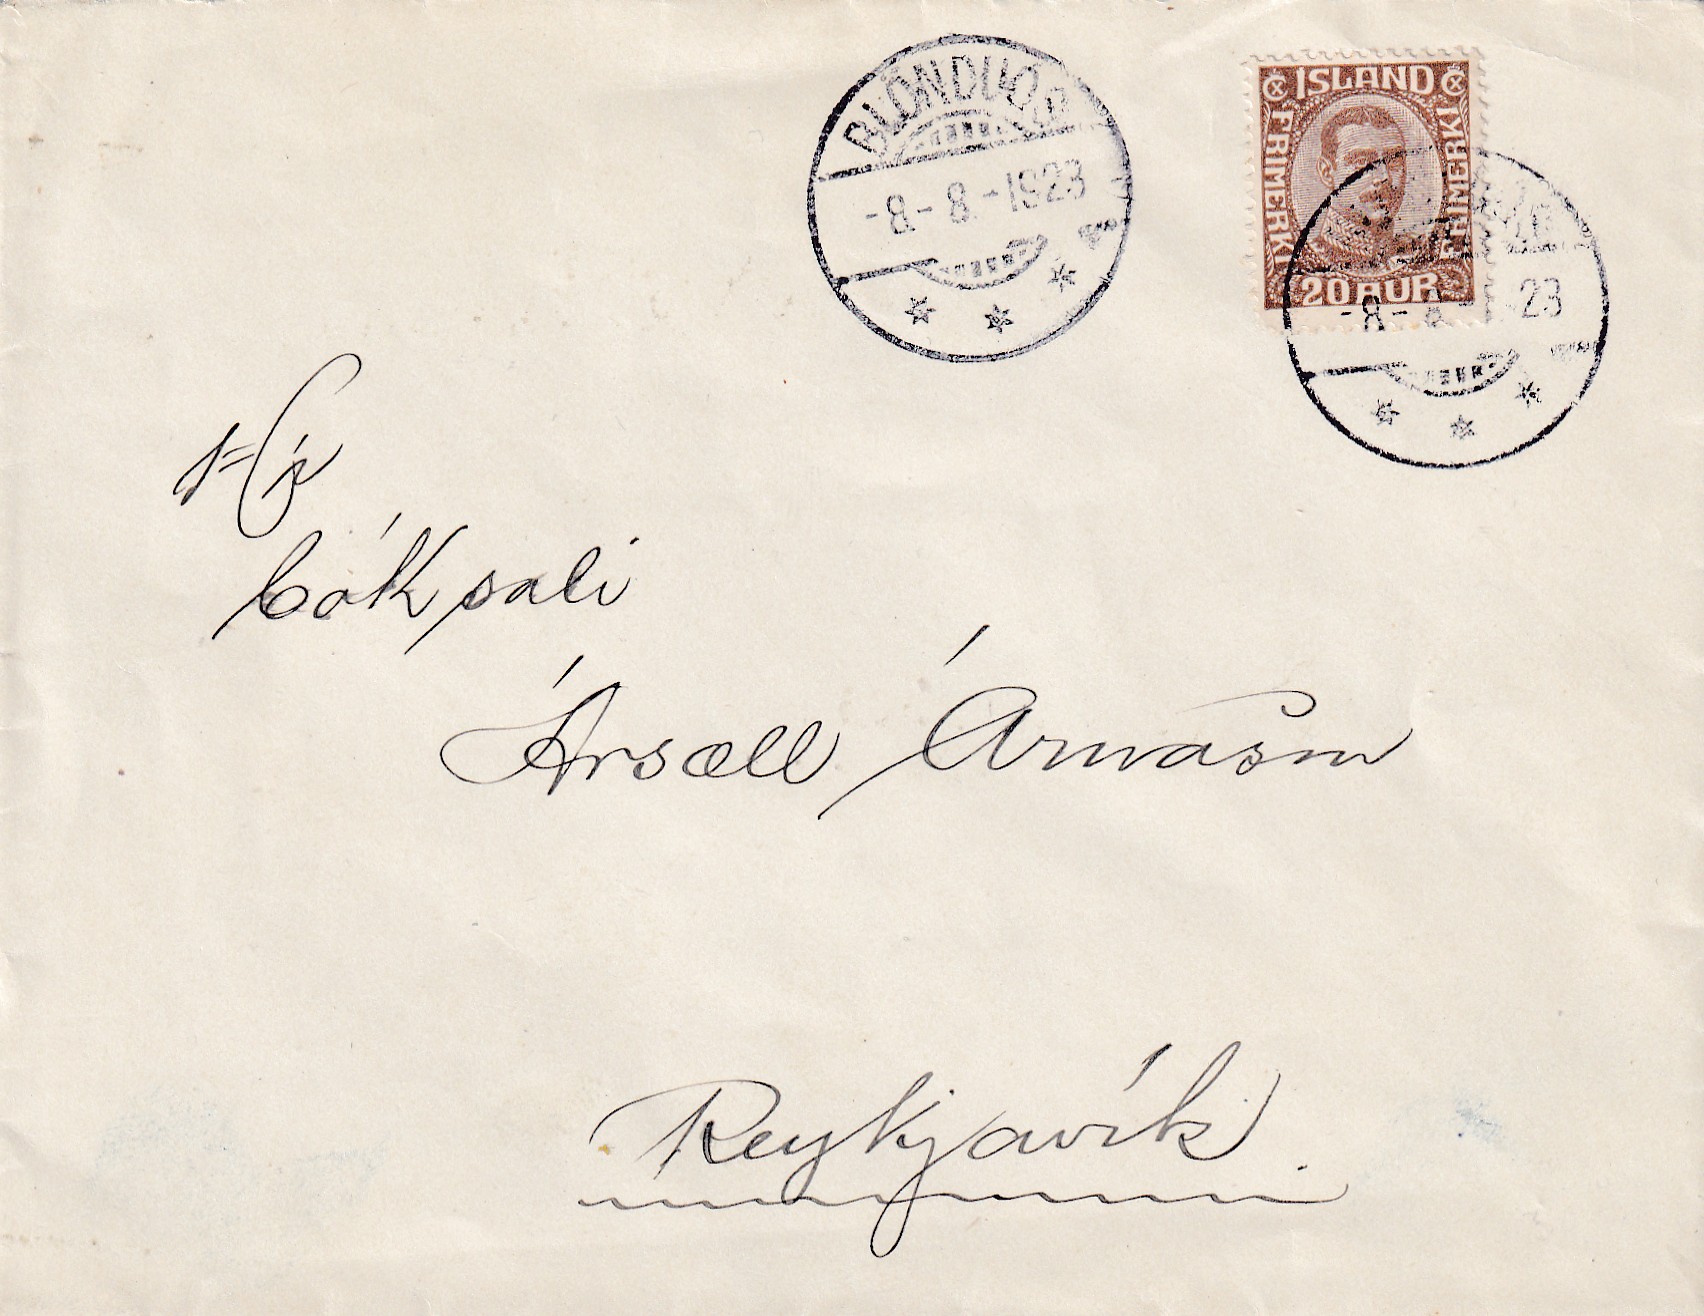 BLÖNDUÓS
-8-8-1923
ÍSLAND
FRÍMERKI
FRÍMERKI
20 AUR
-8- 8-1 23
Hr
bóksali
Ársæll Árnason
Reykjavík.